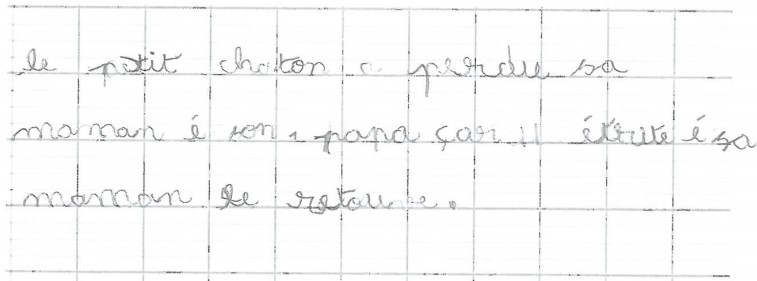 le petit chaton a perdu sa
maman é son papa çar il étrite é sa
maman le retouve.